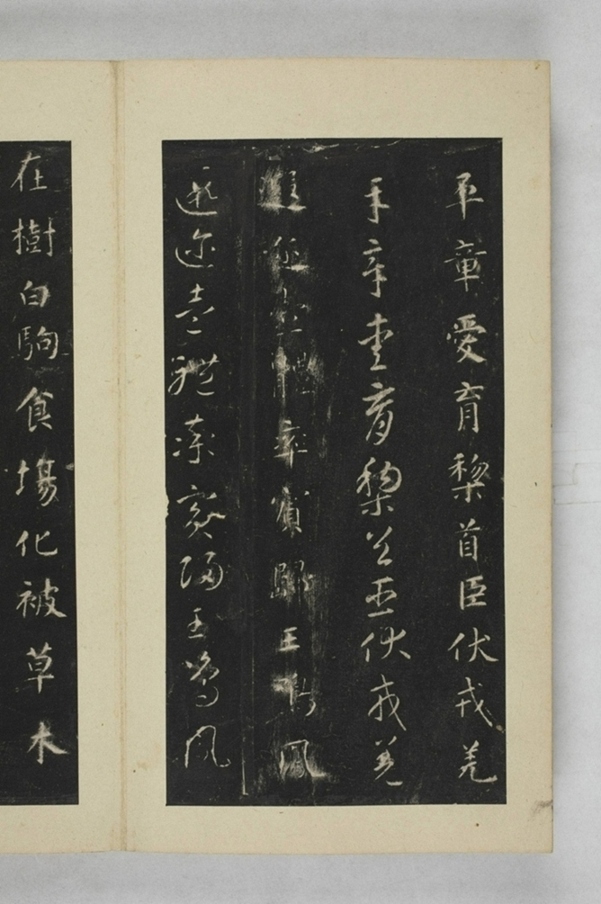 平章愛育黎首臣伏戎羌
平章愛育黎首臣伏戎羌
遐邇壹體率賓歸王鳴鳳
遐邇壹體率賓歸王鳴鳳
在樹白駒食場化被草木